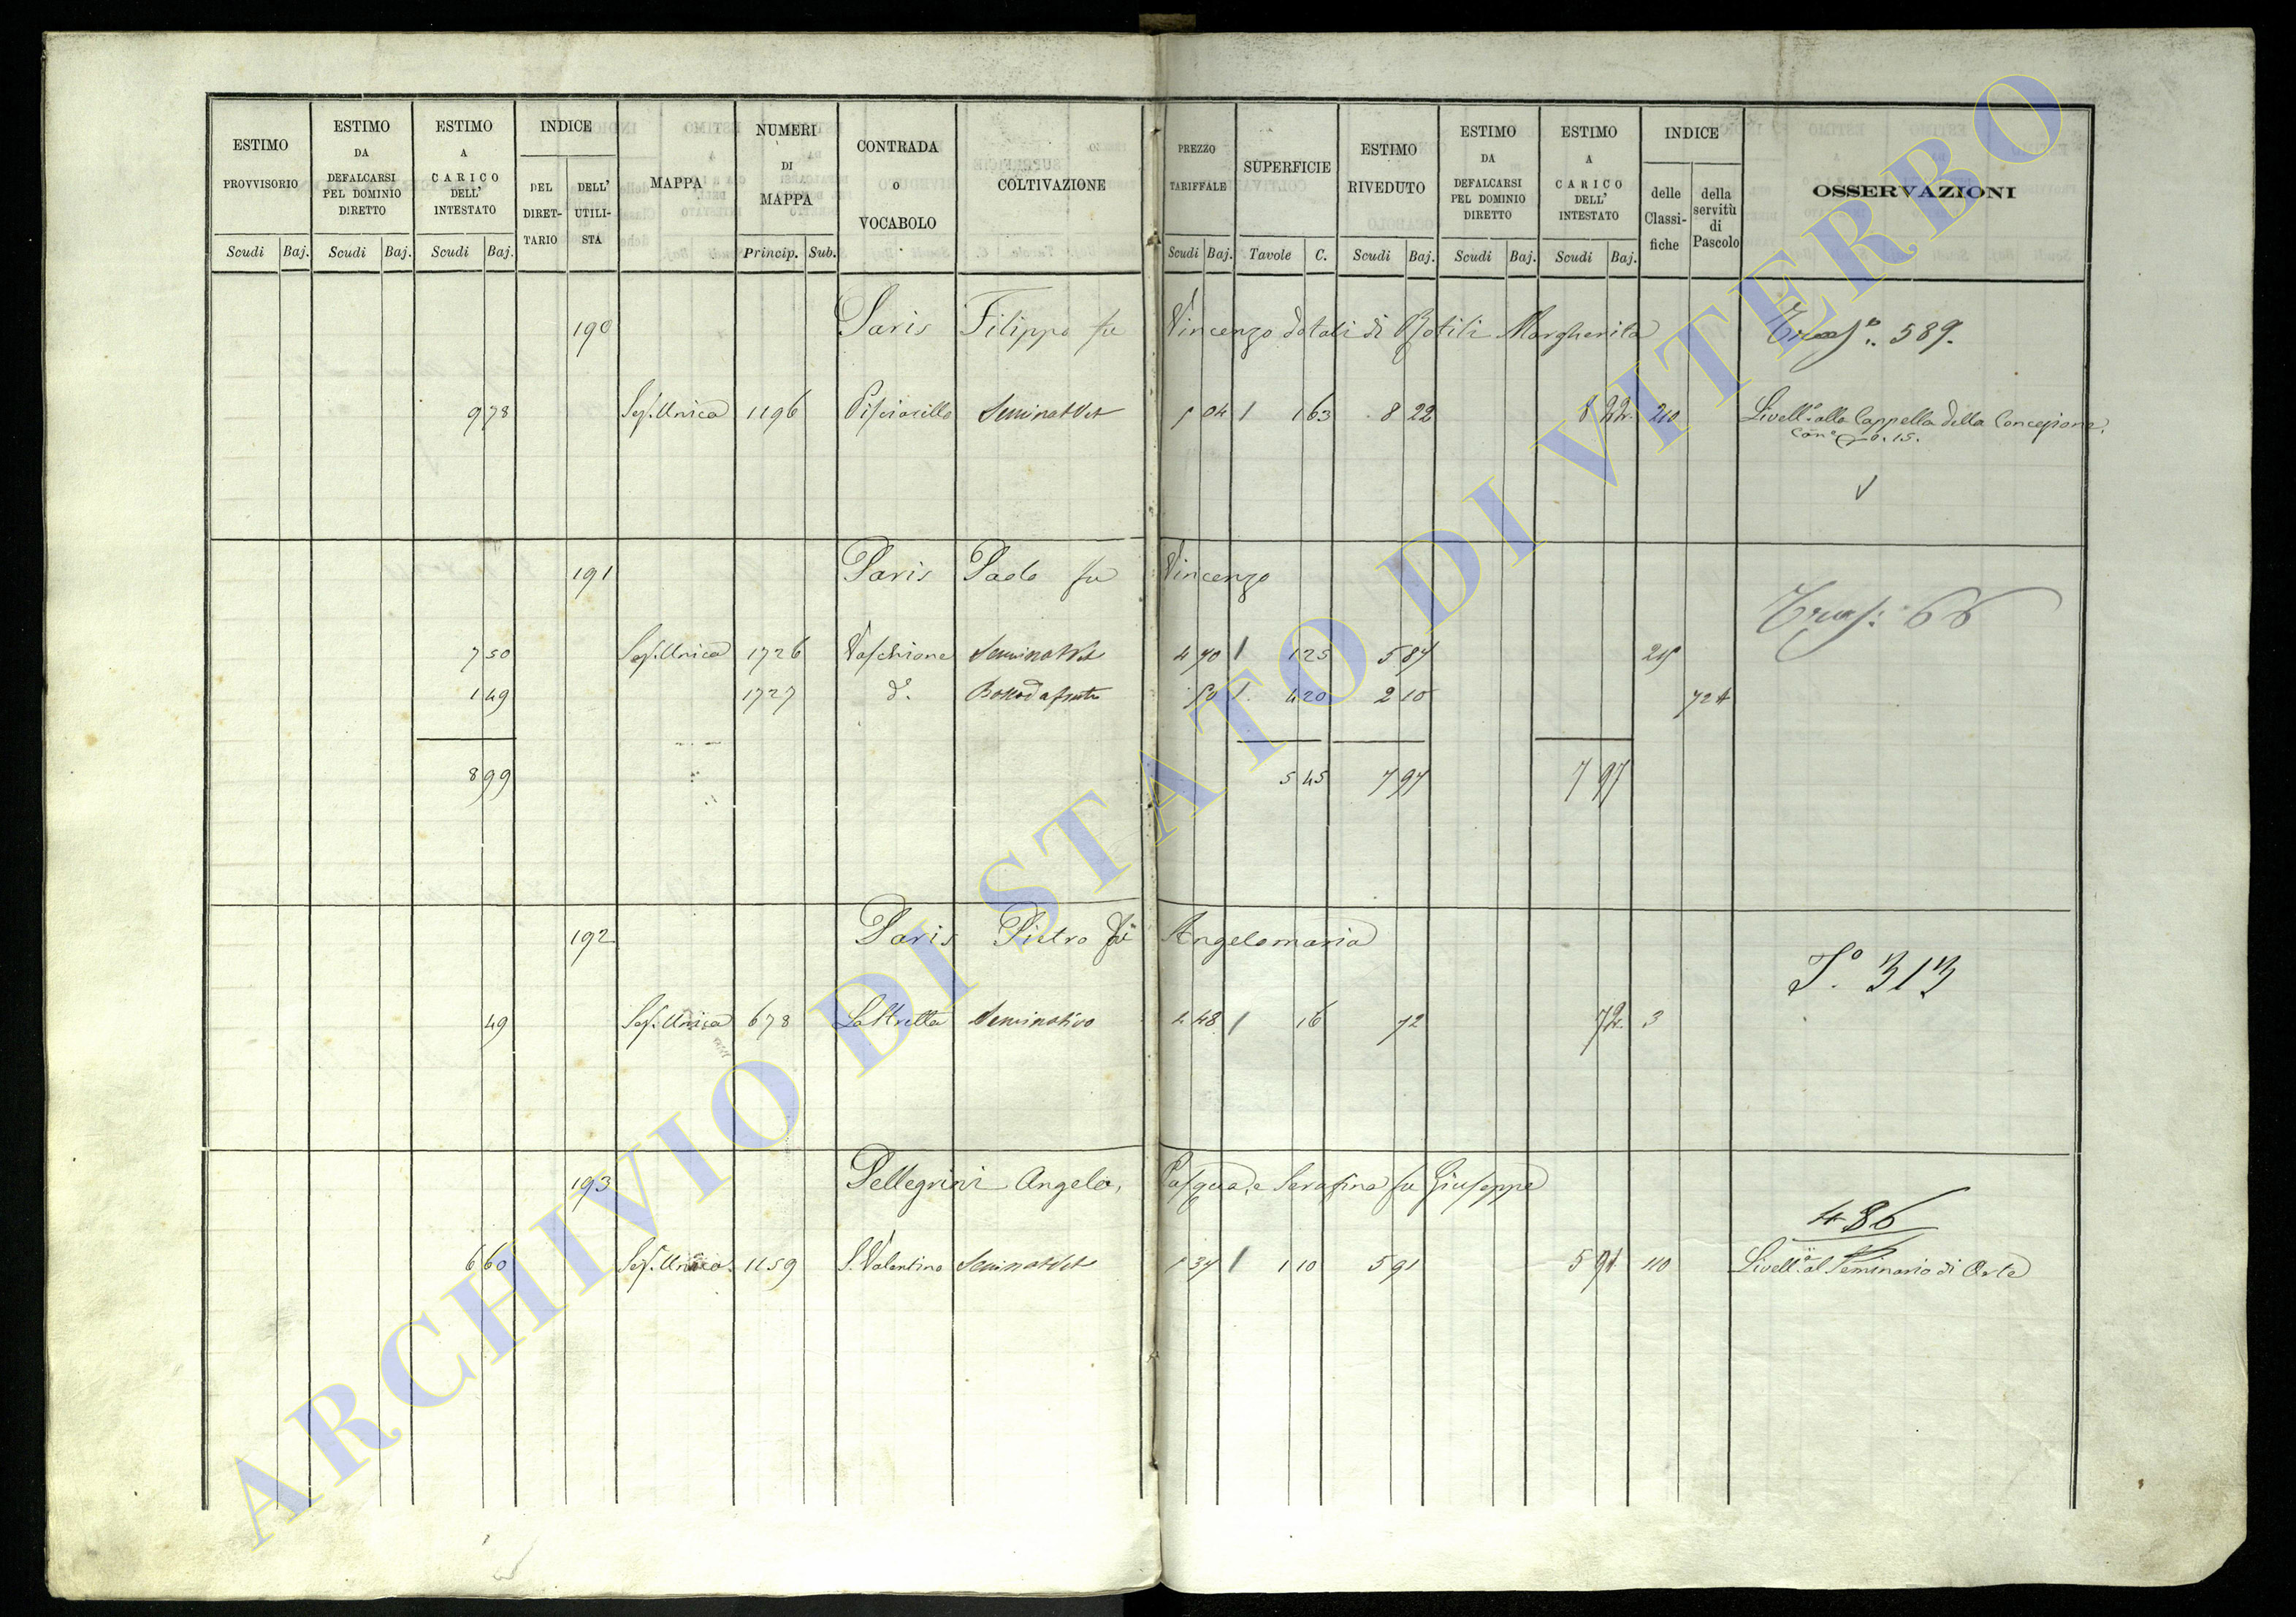 ESTIMO PROVVISORIO Scudi Baj.
ESTIMO DA DEFALCARSI PEL DOMINIO DIRETTO Scudi Baj.
ESTIMO A CARICO DELL' INTESTATO Scudi Baj.
INDICE DEL DIRETTARIO DELL' UTILISTA
MAPPA
NUMERI DI MAPPA Princip. Sub.
CONTRADA O VOCABOLO
COLTIVAZIONE
PREZZO TARIFFALE Scudi Baj.
SUPERFICIE Tavole C.
ESTIMO RIVEDUTO Scudi Baj.
ESTIMO DA DEFALCARSI PEL DOMINIO DIRETTO Scudi Baj.
ESTIMO A CARICO DELL' INTESTATO Scudi Baj.
INDICE delle Classifiche della servitù di Pascolo
OSSERVAZIONI
190 Paris Filippo fu Vincenzo dotali di Margherita 589.
9 78 Sez. Unica 1196 Pisciarello 5 04 1 63 8 22 8 22 210 Livell.º alla Cappella della Concezione
191 Paris Paolo fu Vincenzo
Trasf: 66
7 50 Sez. Unica 1726 Vaschione 4 70 1 25 5 87 215
1 49 1727 d.º 50 4 20 2 10 724
8 99 5 45 7 97 7 97
192 Paris Pietro fu Angelomaria
Tº. 313
49 Sez. Unica 678 Seminativo 4 48 16 72 72 3
193 Pellegrini Angela, Pasqua, e Serafina fu Giuseppe
486
6 60 Sez. Unica 1159 S. Valentino 5 37 1 10 5 91 5 91 110 Livell.º al Seminario di Orte
ARCHIVIO DI STATO DI VITERBO